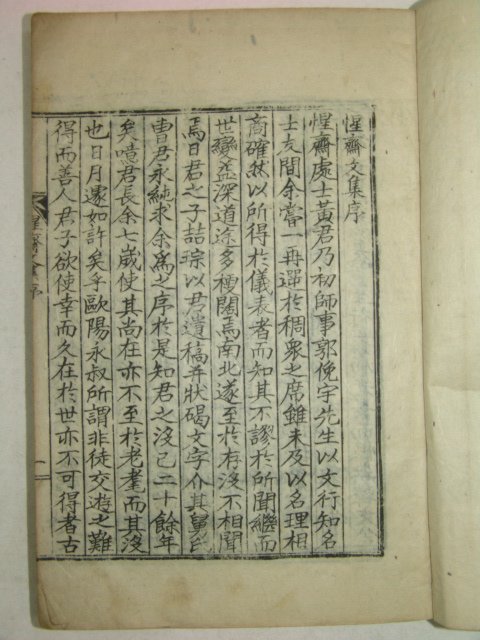 惺齋文集序
惺齋處士黃君乃初師事郭俛宇先生以文行知名
士友間余嘗一再選於稠衆之席雖未及以名理相
商確然以所得於儀表者而知其不謬於所聞繼而
世變益深道途多梗闊焉南北遂至於存沒不相聞
焉日君之子喆琮以君遺稿幷狀碣文字介其舅氏
曺君永純求余爲之序於是知君之沒已二十餘年
矣噫君長余七歲使其尚在亦不至於老耄而其沒
也日月遽如許矣乎歐陽永叔所謂非徒交遊之難
得而善人君子欲使幸而久在於世亦不可得者古
惺齋
序
一